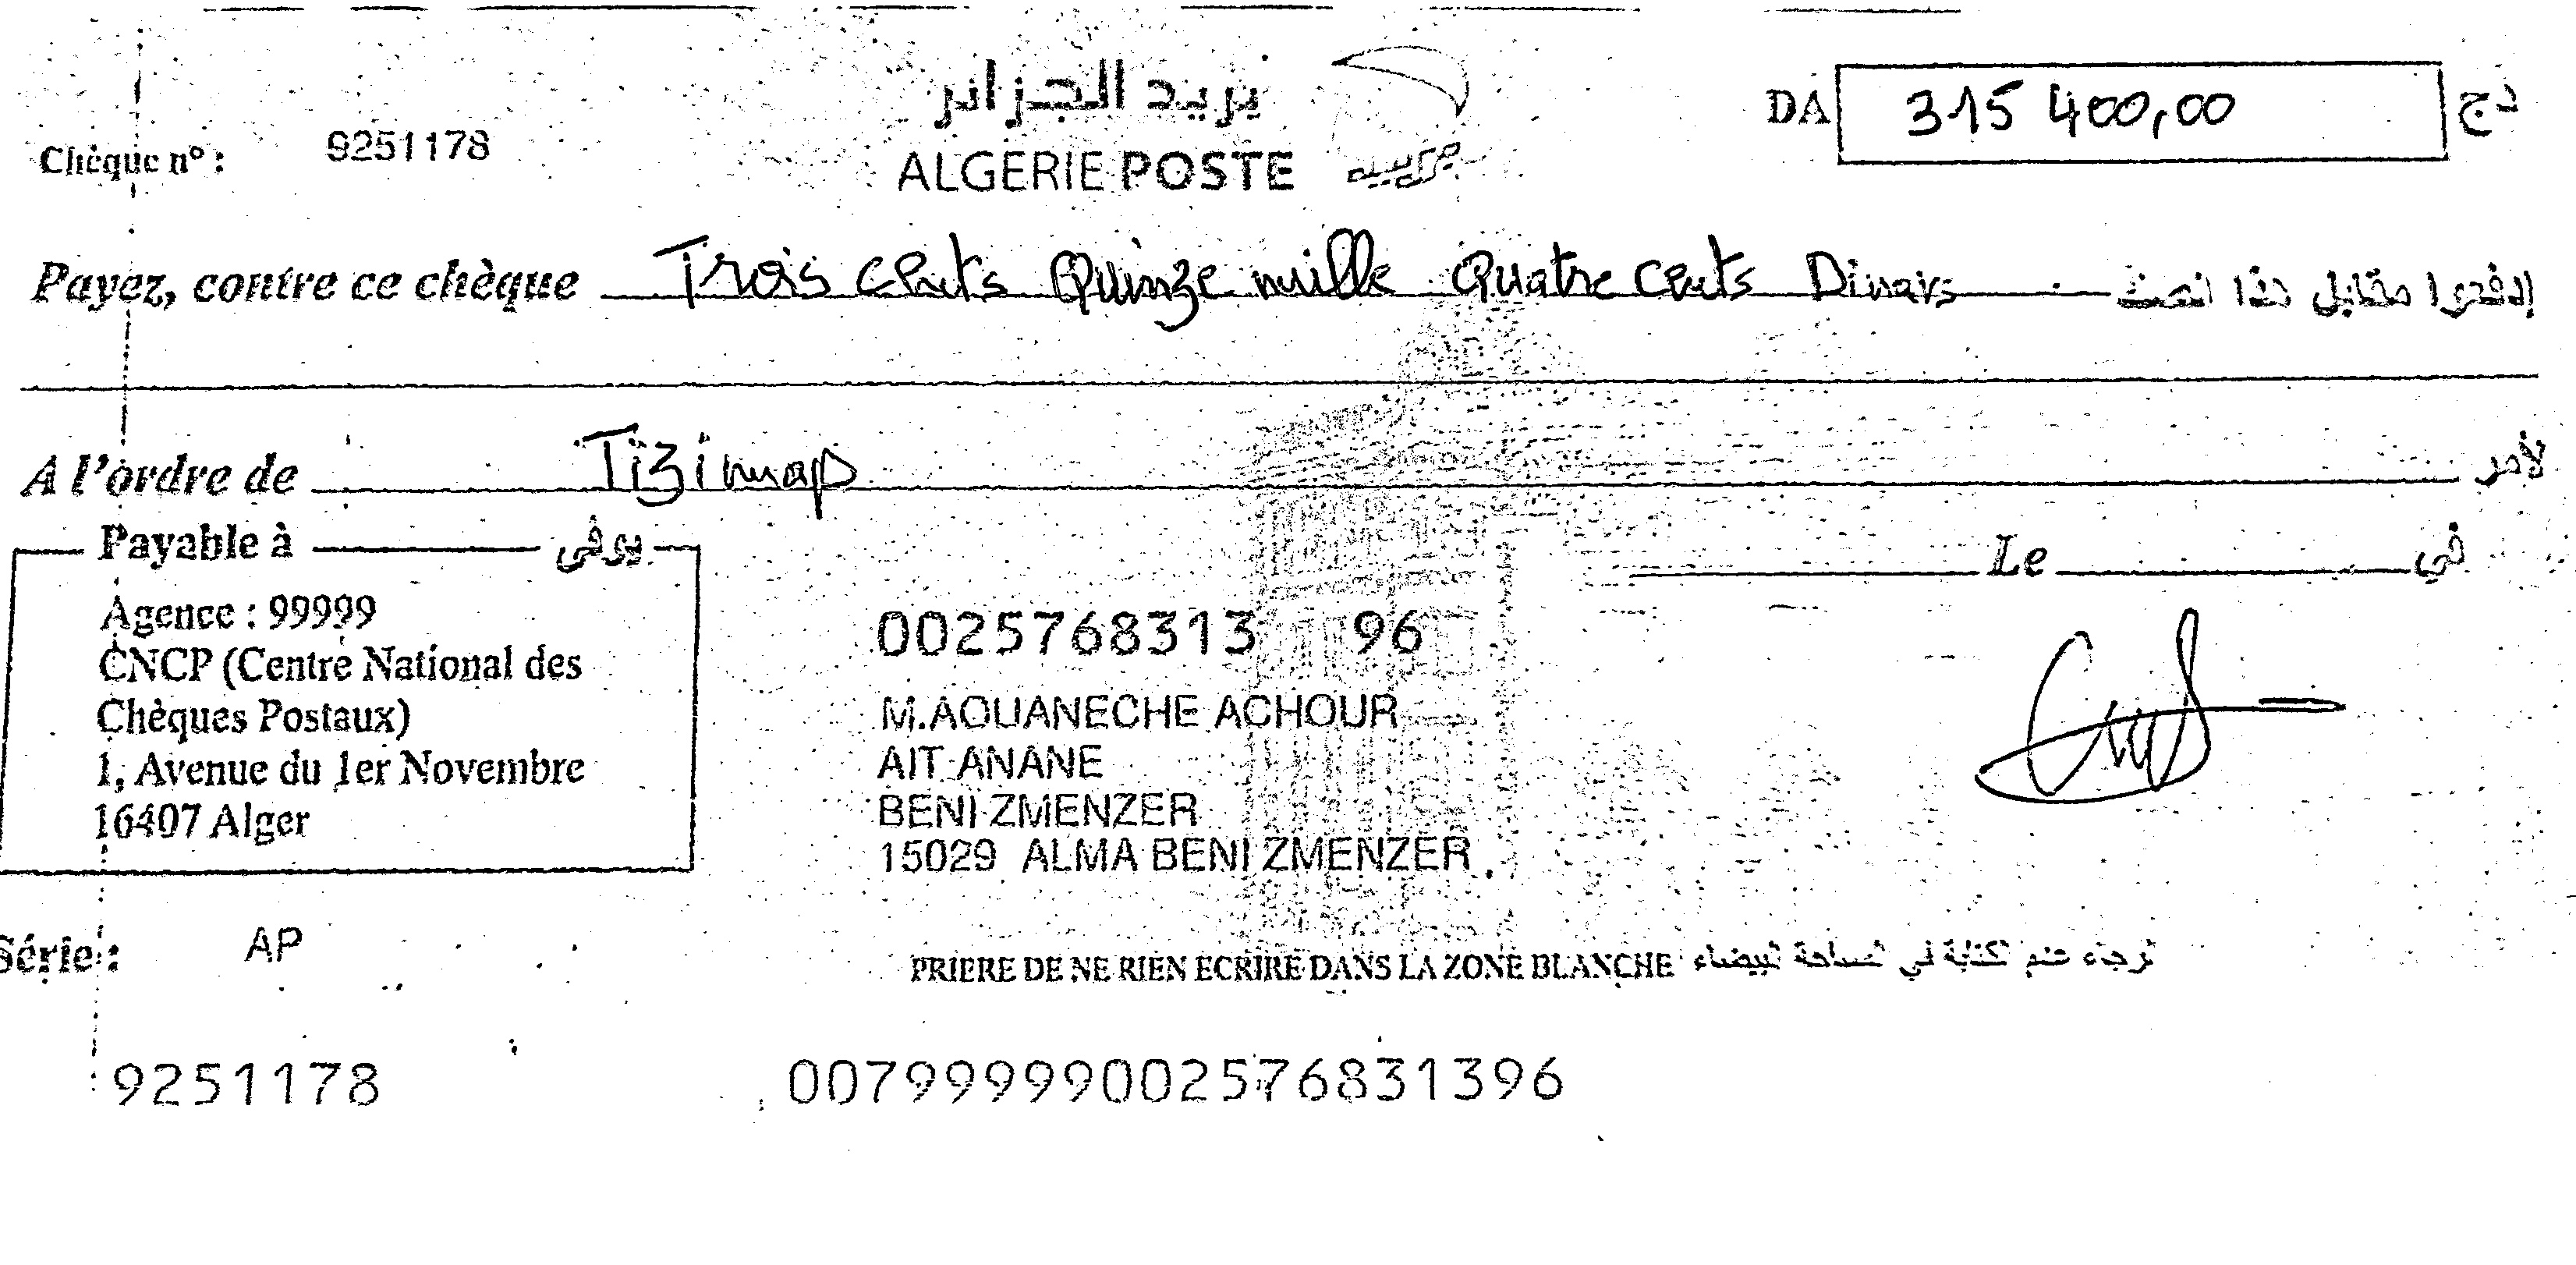 بريد الجزائر
ALGERIE POSTE
Chèque n° : 9251178
DA 315 400,00 دج
Payez, contre ce chèque Trois cents Quinze mille Quatre cents Dinars إدفعوا مقابل هذا الصك
A l'ordre de Tizi map لأمر
Payable à يوفى
Agence : 99999
CNCP (Centre National des
Chèques Postaux)
1, Avenue du 1er Novembre
16407 Alger
Le في
0025768313 96
M.AOUANECHE ACHOUR
AIT ANANE
BENI ZMENZER
15029 ALMA BENI ZMENZER
Série : AP
PRIERE DE NE RIEN ECRIRE DANS LA ZONE BLANCHE
9251178 00799999002576831396